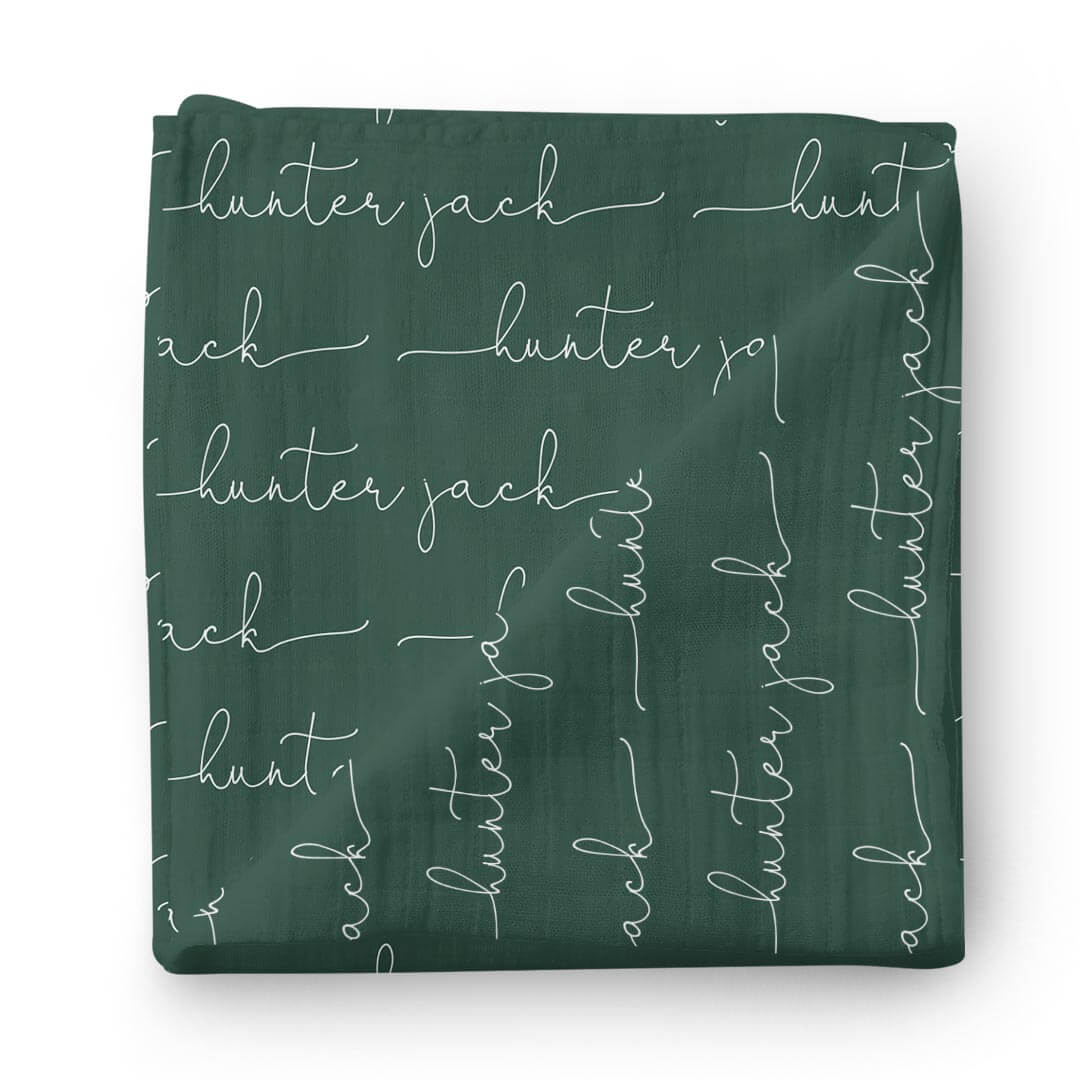 hunter jack hunt
ack hunter ja
hunter jack
ack
hunt
hunter jack
hunter jack
hunter ja
hunte
ack
ack
ack